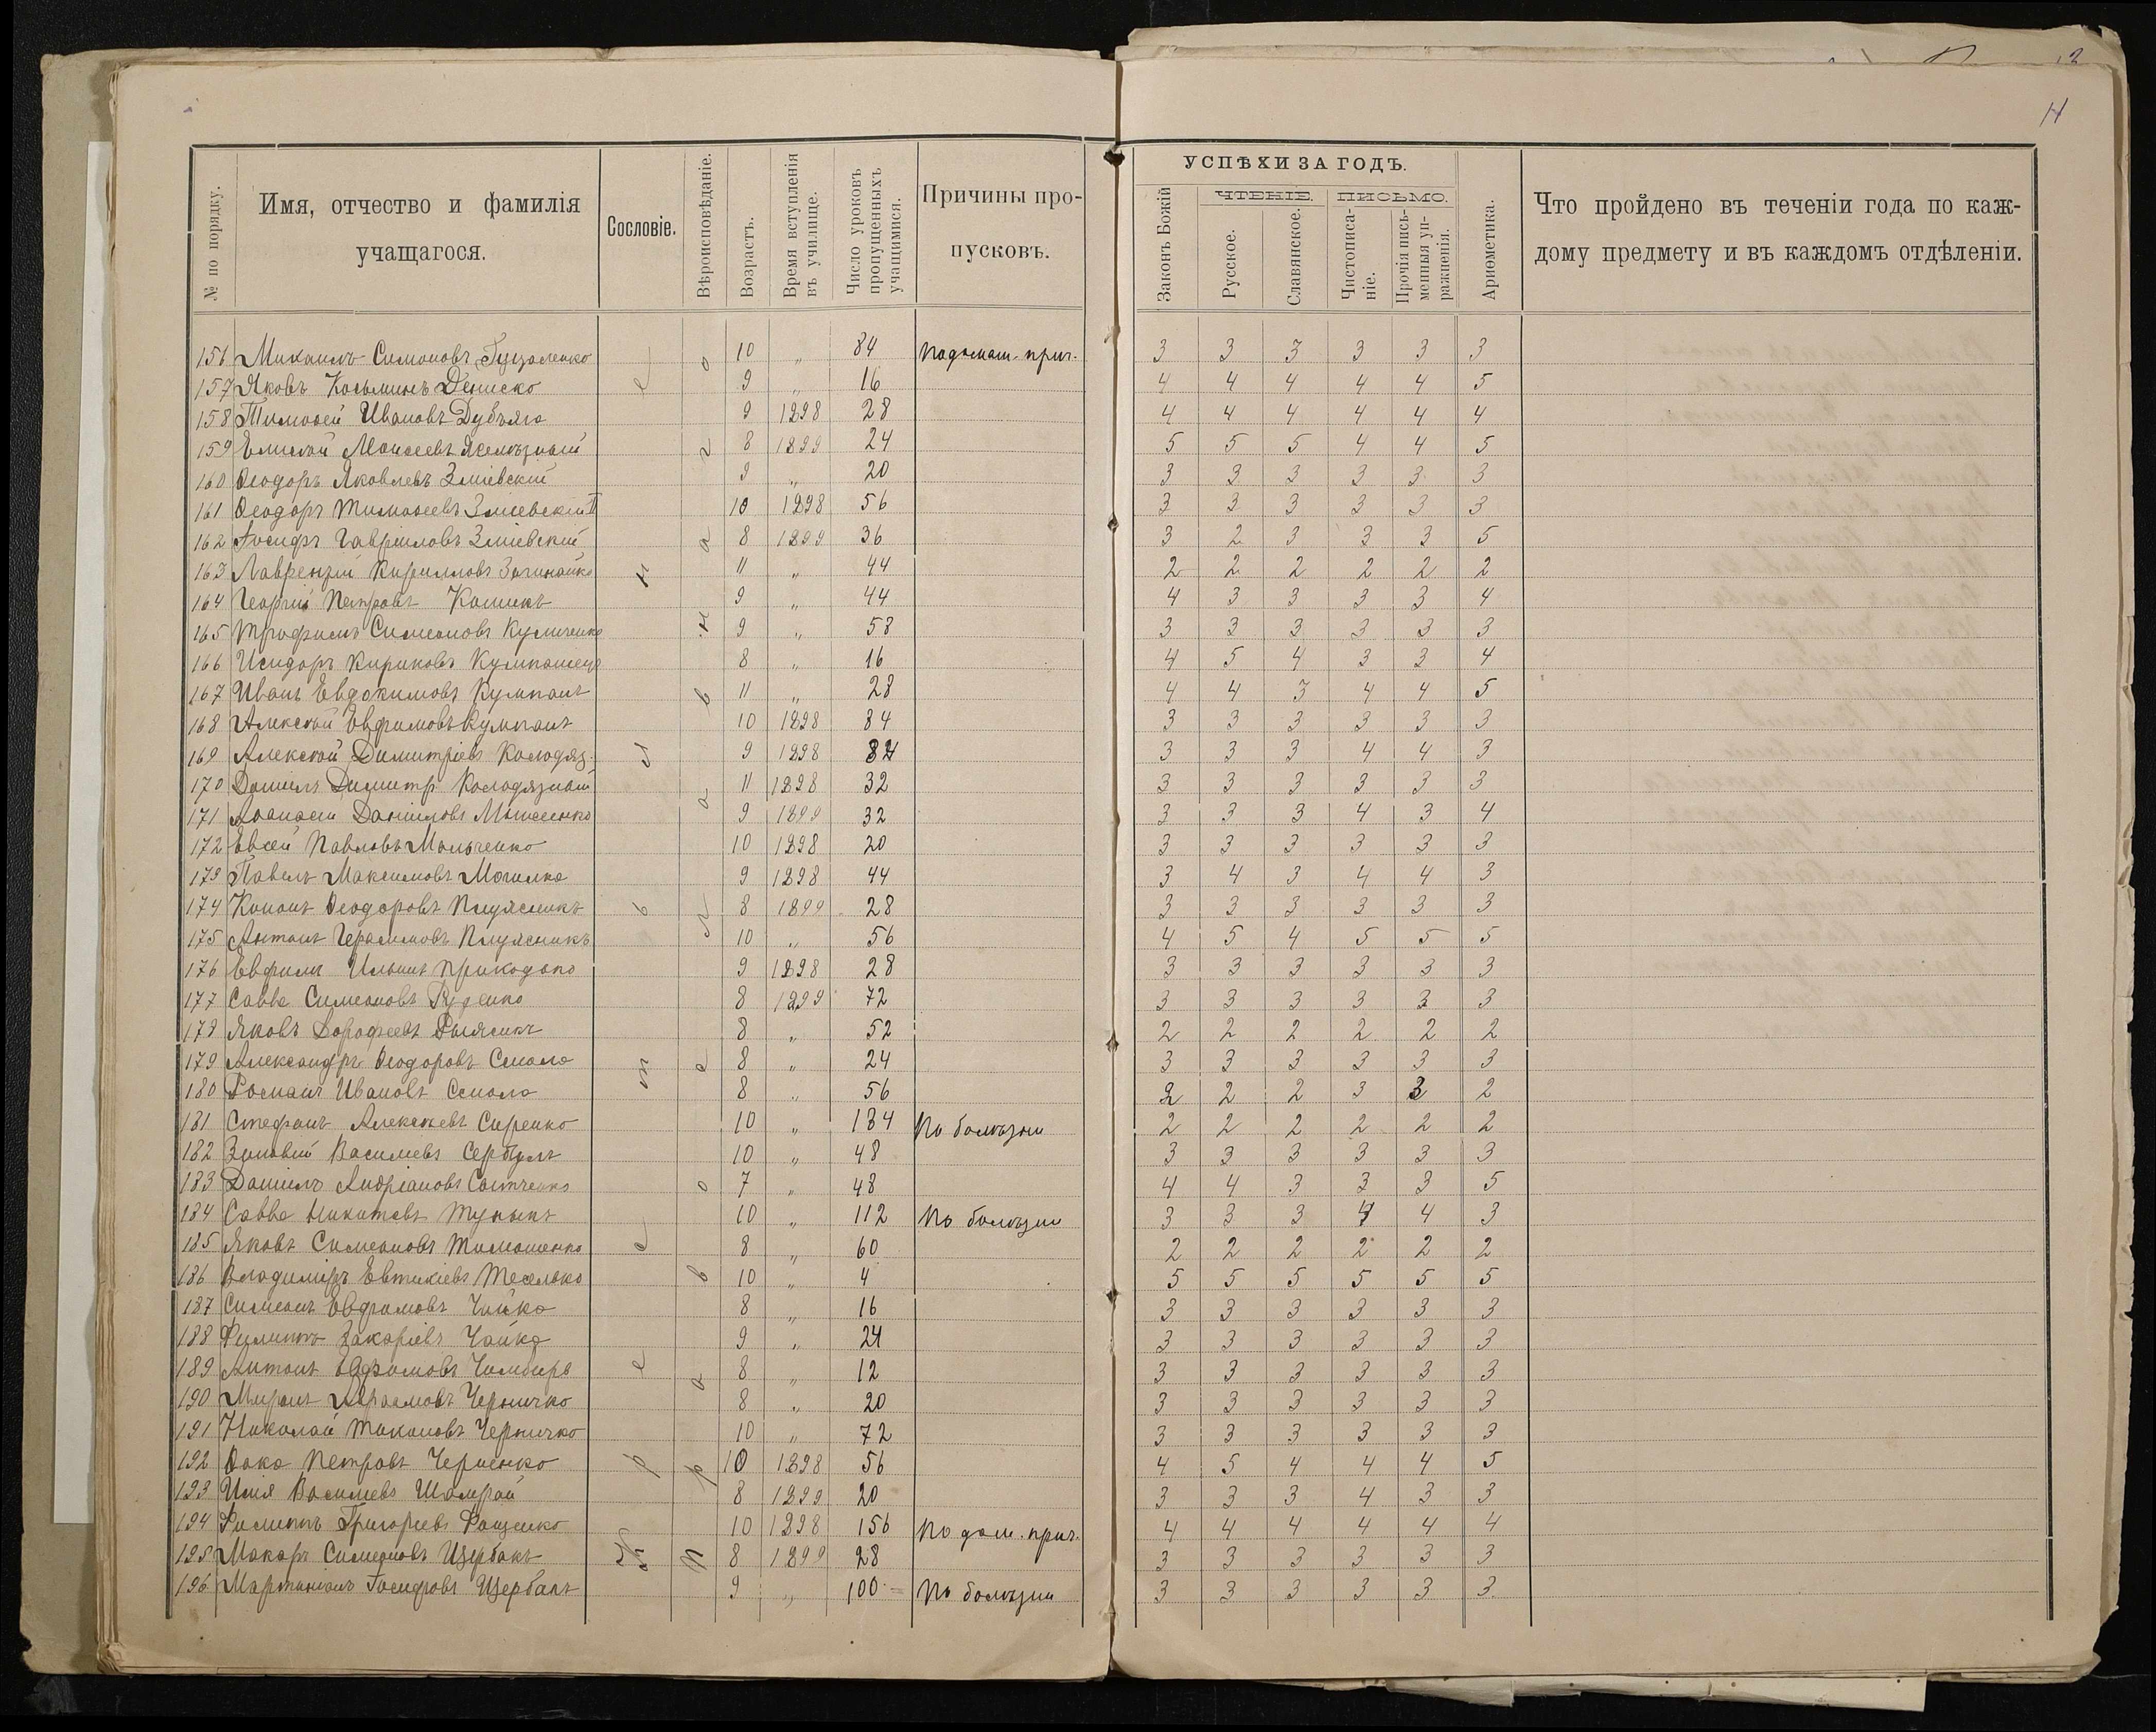 14
№ по порядку.
Имя, отчество и фамилія учащагося.
Сословіе.
Вѣроисповѣданіе.
Возрастъ.
Время вступленія въ училище.
Число уроковъ пропущенныхъ учащимися.
Причины пропусковъ.
УСПѢХИ ЗА ГОДЪ.
Законъ Божій
ЧТЕНІЕ.
Русское.
Славянское.
ПИСЬМО.
Чистописаніе.
Прочія письменныя упражненія.
Ариѳметика.
Что пройдено въ теченіи года по каждому предмету и въ каждомъ отдѣленіи.
156 Михаилъ Симоновъ 10 „ 84 По домаш. прич. 3 3 3 3 3 3
157 Яковъ Козьминъ Дениско 9 „ 16 4 4 4 4 4 5
158 Тимоѳей Ивановъ Дубъяга 9 1898 28 4 4 4 4 4 4
159 Елисей Моисеевъ Желѣзный 8 1899 24 5 5 5 4 4 5
160 Ѳеодоръ Яковлевъ Зміевскій 9 „ 20 3 3 3 3 3 3
161 Ѳеодоръ Тимоѳеевъ Зміевскій II 10 1898 56 3 3 3 3 3 3
162 Іосифъ Гавріиловъ Зміевскій 8 1899 36 3 2 3 3 3 5
163 Лаврентій Кирилловъ 11 „ 44 2 2 2 2 2 2
164 Георгій Петровъ 9 „ 44 4 3 3 3 3 4
165 Трофимъ Симеоновъ Куличенко 9 „ 58 3 3 3 3 3 3
166 Исидоръ Кириковъ 8 „ 16 4 5 4 3 3 4
167 Иванъ Евдокимовъ Кумпанъ 11 „ 28 4 4 3 4 4 5
168 Алексѣй Евфимовъ Кумпанъ 10 1898 84 3 3 3 3 3 3
169 Алексѣй Димитріевъ Колодяз. 9 1898 84 3 3 3 4 4 3
170 Даніилъ Димитр Колодязный 11 1898 32 3 3 3 3 3 3
171 Аѳанасій Даніиловъ 9 1899 32 3 3 3 4 3 4
172 Евсей Павловъ Мальченко 10 1898 20 3 3 3 3 3 3
173 Павелъ Максимовъ Могилка 9 1898 44 3 4 3 4 4 3
174 Кононъ Ѳеодоровъ 8 1899 28 3 3 3 3 3 3
175 Антонъ Герасимовъ 10 „ 56 4 5 4 5 5 5
176 Евфимъ Ильинъ Приходько 9 1898 28 3 3 3 3 3 3
177 Савва Симеоновъ Руденко 8 1899 72 3 3 3 3 3 3
178 Яковъ Дорофеевъ 8 „ 52 2 2 2 2 2 2
179 Александръ Ѳеодоровъ Смола 8 „ 24 3 3 3 3 3 3
180 Романъ Ивановъ Смола 8 „ 56 2 2 2 3 3 2
181 Стефанъ Алексѣевъ Сиренко 10 „ 184 По болѣзни 2 2 2 2 2 2
182 Зиновій Василіевъ Сербулъ 10 „ 48 3 3 3 3 3 3
183 Даніилъ Андріановъ 7 „ 48 4 4 3 3 3 5
184 Савва Никитовъ 10 „ 112 По болѣзни 3 3 3 4 4 3
185 Яковъ Симеоновъ Тимошенко 8 „ 60 2 2 2 2 2 2
186 Владиміръ Евтихіевъ 10 „ 4 5 5 5 5 5 5
187 Симеонъ Евфимовъ Чайка 8 „ 16 3 3 3 3 3 3
188 Филиппъ Захаріевъ Чайка 9 „ 24 3 3 3 3 3 3
189 Антонъ Евфимовъ 8 „ 12 3 3 3 3 3 3
190 Миронъ Абрамовъ Черничко 8 „ 20 3 3 3 3 3 3
191 Николай Тихоновъ Черничко 10 „ 72 3 3 3 3 3 3
192 Ѳока Петровъ Черненко 10 1898 56 4 5 4 4 4 5
193 Илія Василіевъ Шамрай 8 1899 20 3 3 3 4 3 3
194 Филиппъ Григоріевъ Фощенко 10 1898 156 По дом. прич. 4 4 4 4 4 4
195 Макаръ Симеоновъ Щербакъ 8 1899 28 3 3 3 3 3 3
196 Мартиніанъ Іосифовъ Щербакъ 9 „ 100 По болѣзни 3 3 3 3 3 3